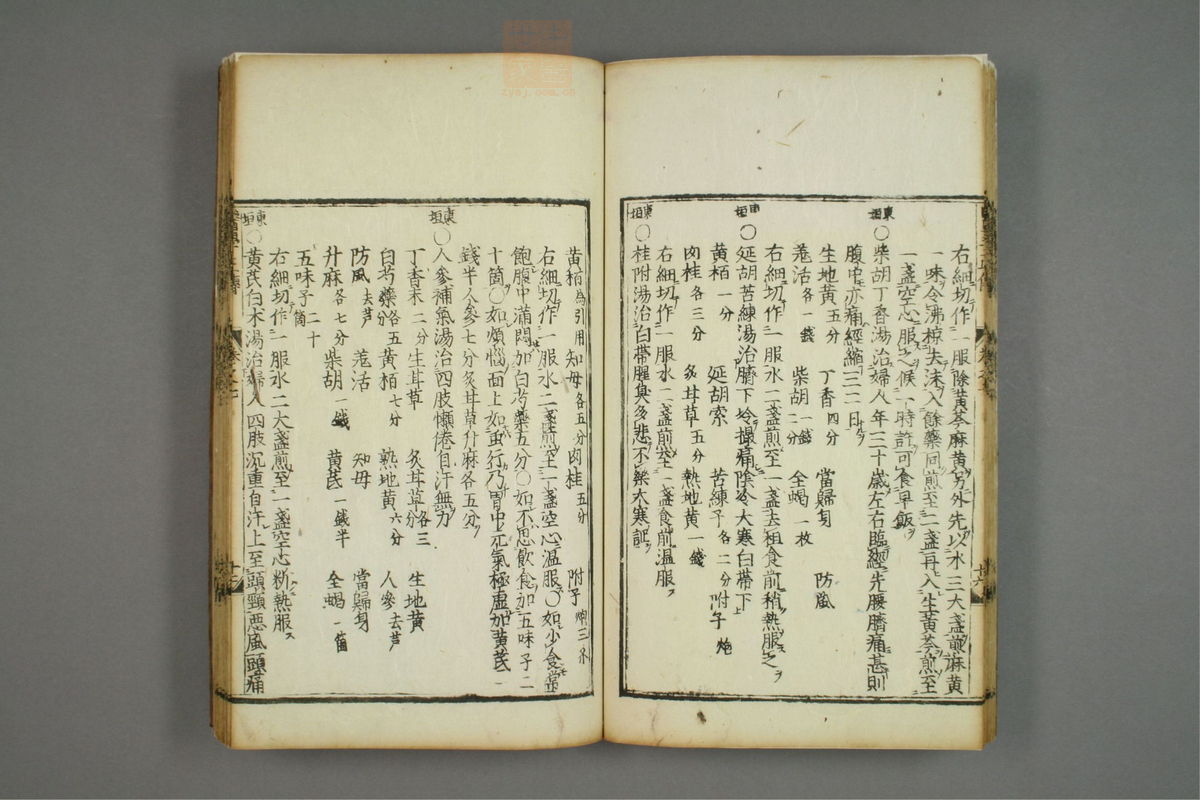 右細切作一服除黄芩麻黄另外先以水三大盞煎麻黄
一味令沸掠去沫入餘藥同煎至二盞再入生黄芩煎至
一盞空心服之候一時許可食早飯
東垣○柴胡丁香湯治婦人年三十歳左右臨經先腰臍痛甚則
腹中亦痛經縮二三日
生地黄五分 丁香四分 當歸身 防風
羗活各一錢 柴胡一錢二分 全蝎一枚
右細切作一服水二盞煎至一盞去柤食前稍熱服之
東垣○延胡苦練湯治臍下冷撮痛陰冷大寒白帯下
黄栢一分 延胡索 苦練子各二分 附子炮
肉桂各三分 炙甘草五分 熟地黄一錢
右細切作一服水二盞煎至一盞食前温服
東垣○桂附湯治白帯腥臭多悲不樂大寒証
黄栢為引用 知母各五分 肉桂五分 附子炮三分
右細切作一服水二盞煎至一盞空心温服○如少食常
飽腹中滿悶加白芍藥五分○如不思飲食加五味子二
十箇○如煩惱面上如虫行乃胃中元氣極虚加黄芪一
錢半人參七分炙甘草升麻各五分
東垣○人參補氣湯治四肢懶倦自汗無力
丁香末二分 生甘草 炙甘草各三分 生地黄
白芍藥各五分 黄栢七分 熟地黄六分 人參去芦
防風去芦 羗活 知母 當歸身
升麻各七分 柴胡一錢 黄芪一錢半 全蝎一箇
五味子二十箇
右細切作一服水二大盞煎至一盞空心稍熱服
東垣○黄芪白术湯治婦人四肢沉重自汗上至頭頸惡風頭痛